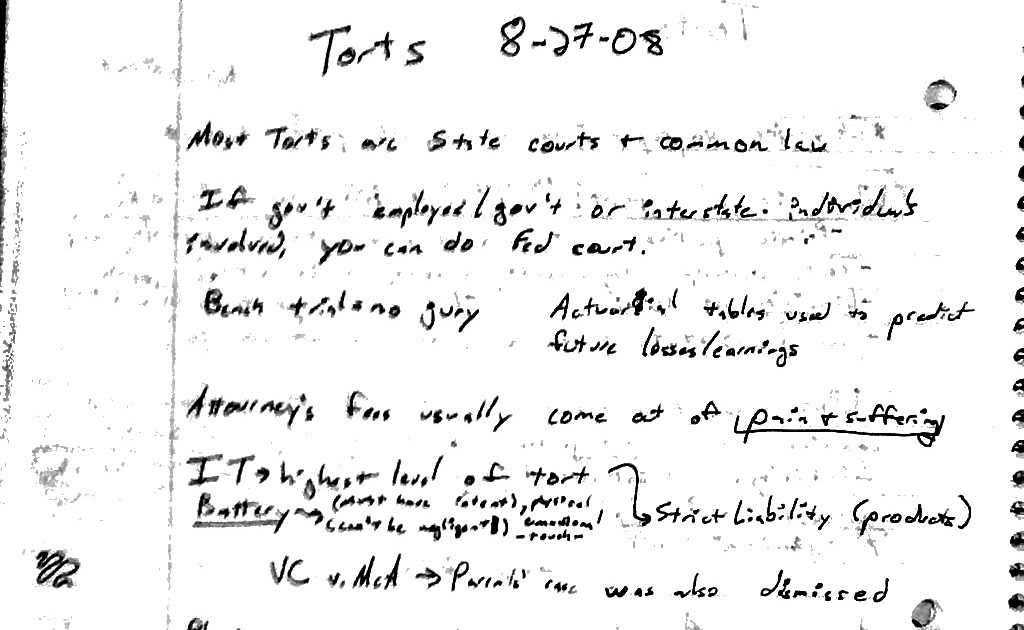 Torts 8-27-08
Most Torts are State courts + common law
If gov't employee/gov't or interstate individuals
involved, you can do Fed court.
Bench trial = no gury Actuarial tables used to predict
future losses/earnings
Attourney's fees usually come out of pain + suffering
IT → highest level of tort
Battery → (must have intent), physical
(can't be negligent) emotional → Strict Liability (products)
-touch-
VC v. McA → Parents' case was also dismissed